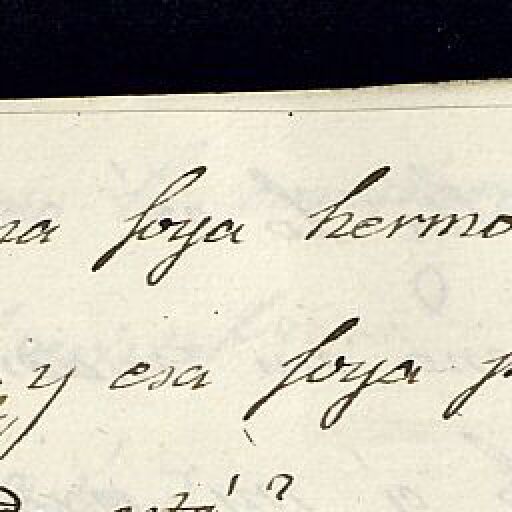 na foya hermo
y esa foya p
está?